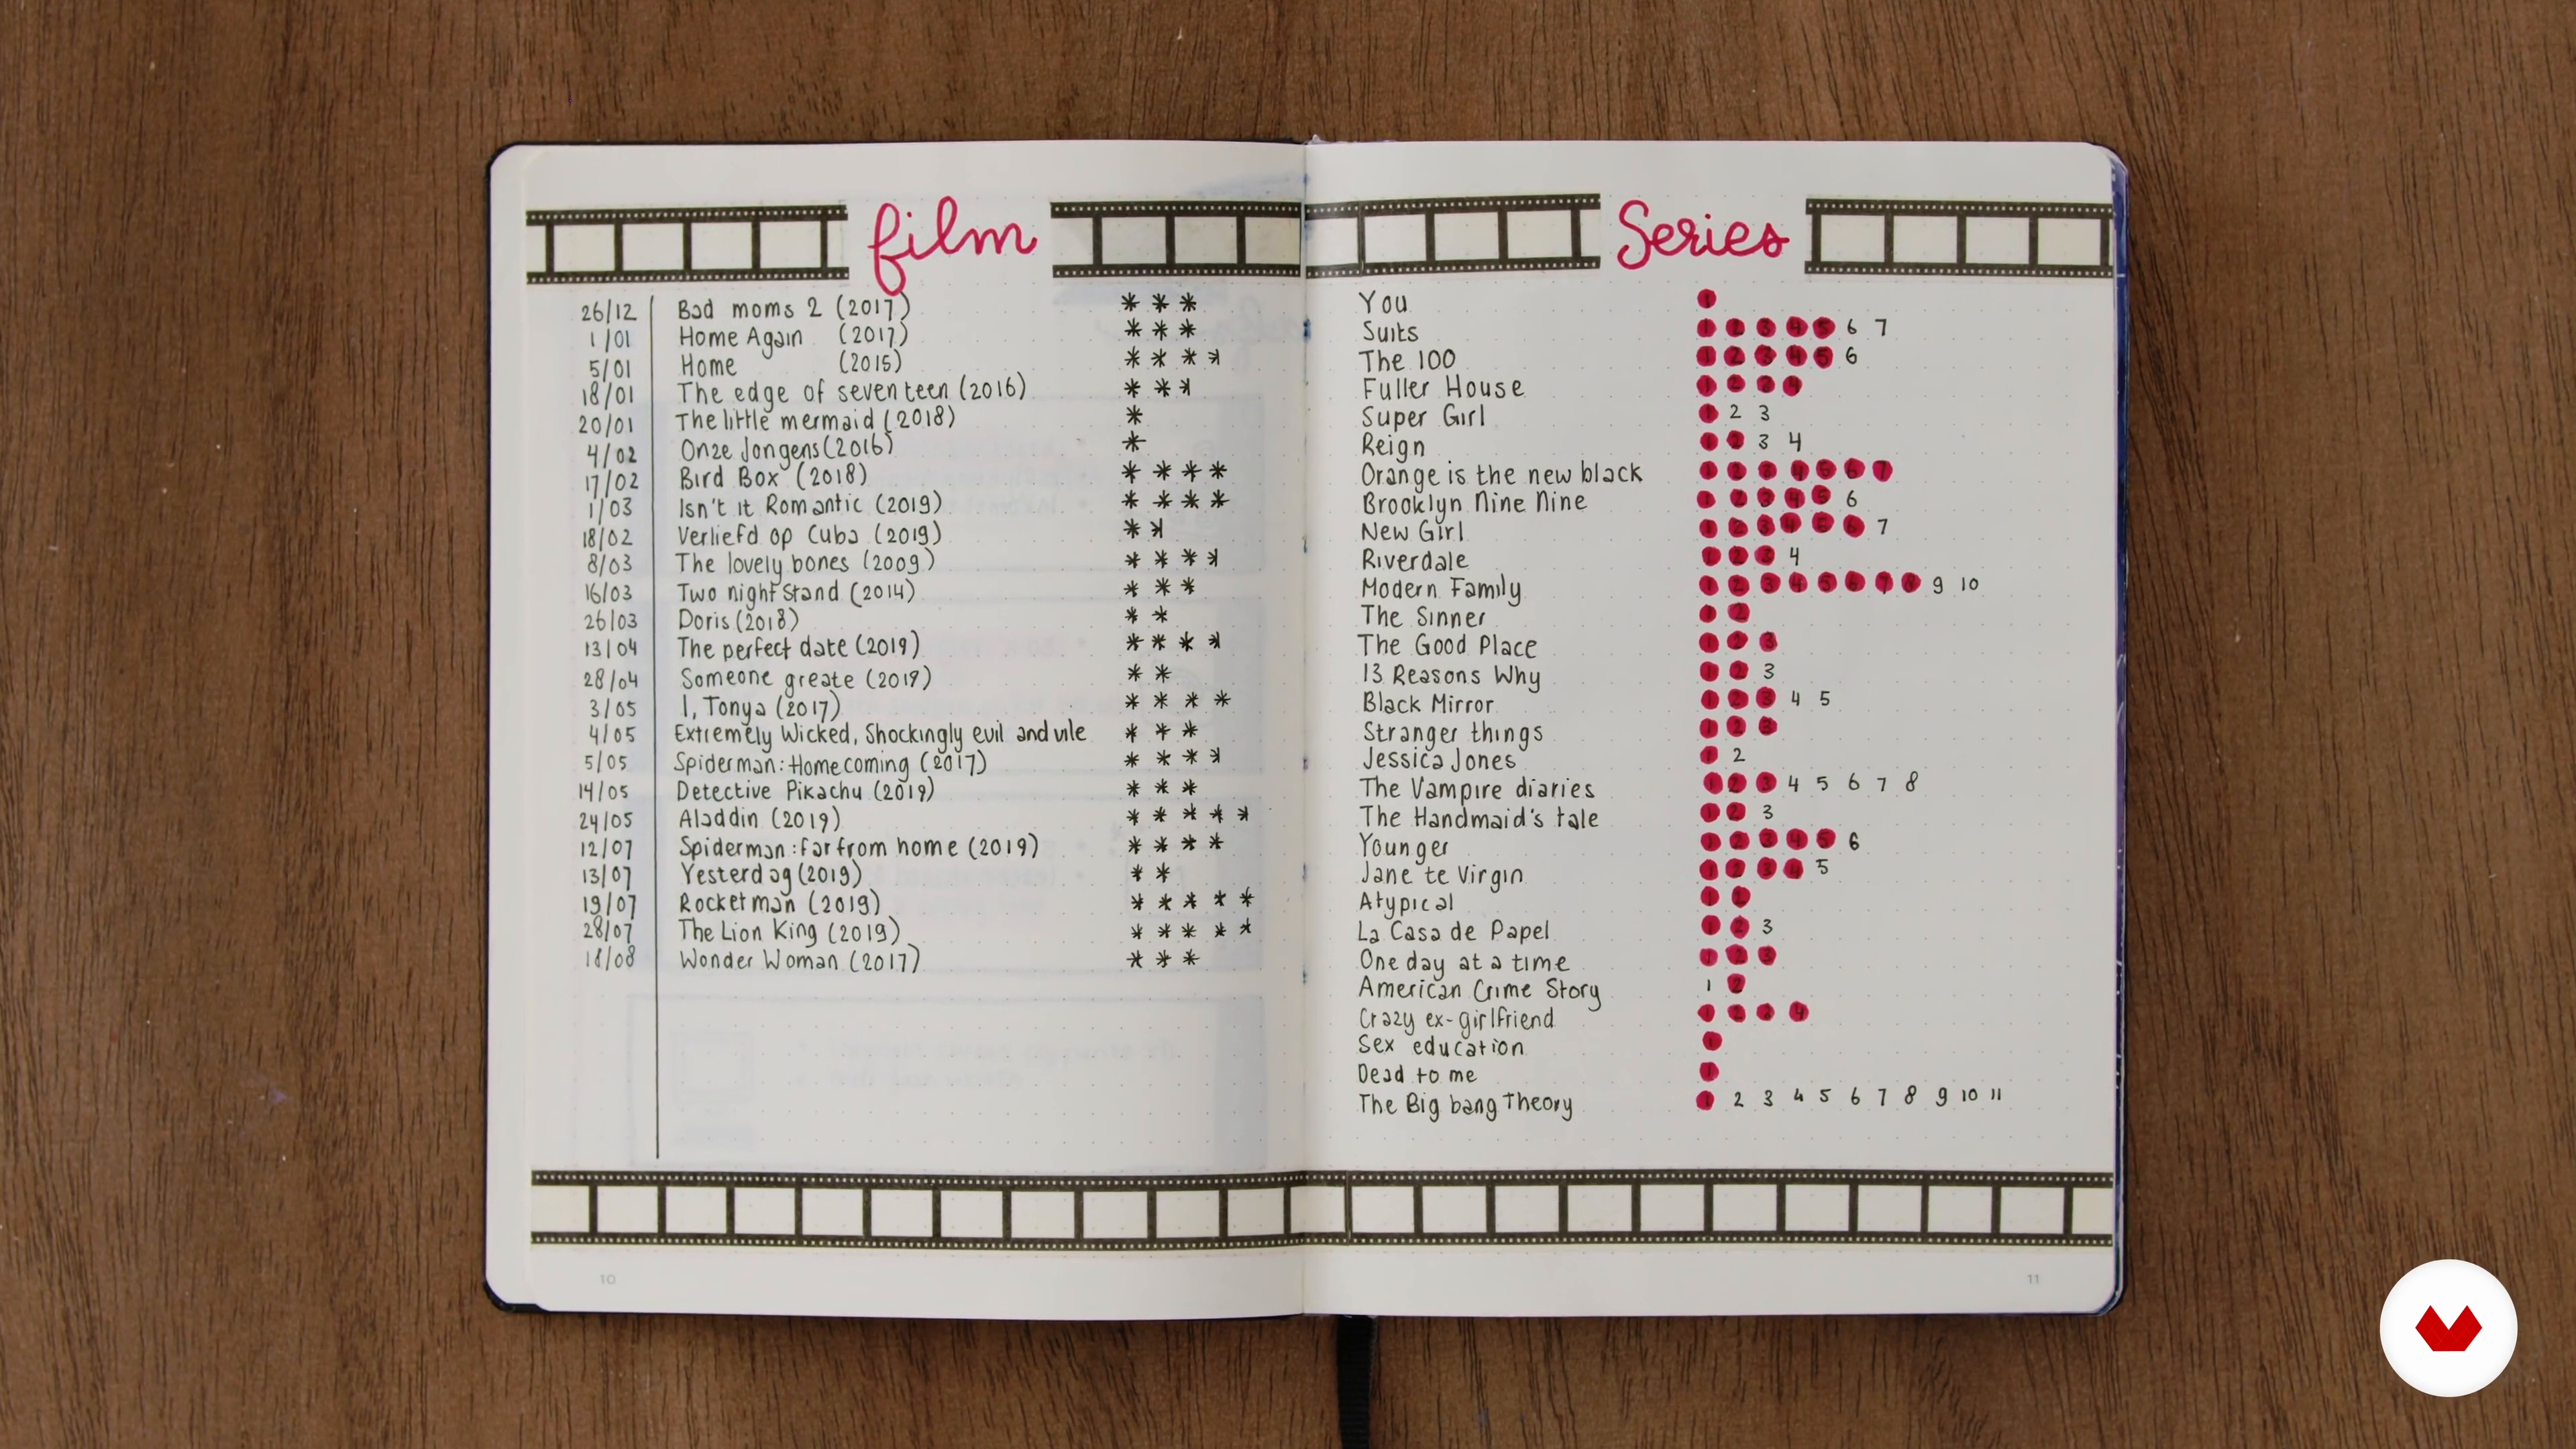 film
26/12 Bad moms 2 (2017) * * *
1/01 Home Again (2017) * * *
5/01 Home (2015) * * * *
18/01 The edge of seventeen (2016) * * *
20/01 The little mermaid (2018) *
4/02 Onze Jongens (2016) *
17/02 Bird Box (2018) * * * *
1/03 Isn't it Romantic (2019) * * * *
18/02 Verliefd op Cuba (2019) * *
8/03 The lovely bones (2009) * * * *
16/03 Two night stand (2014) * * *
26/03 Doris (2018) * *
13/04 The perfect date (2019) * * * *
28/04 Someone greate (2019) * *
3/05 I, Tonya (2017) * * * *
4/05 Extremely Wicked, Shockingly evil and vile * * *
5/05 Spiderman: Homecoming (2017) * * * *
14/05 Detective Pikachu (2019) * * *
24/05 Aladdin (2019) * * * * *
12/07 Spiderman: far from home (2019) * * * *
13/07 Yesterday (2019) * *
19/07 Rocketman (2019) * * * * *
28/07 The Lion King (2019) * * * * *
18/08 Wonder Woman (2017) * * *
10
Series
You 1
Suits 1 2 3 4 5 6 7
The 100 1 2 3 4 5 6
Fuller House 1 2 3 4
Super Girl 1 2 3
Reign 1 2 3 4
Orange is the new black 1 2 3 4 5 6 7
Brooklyn Nine Nine 1 2 3 4 5 6
New Girl 1 2 3 4 5 6 7
Riverdale 1 2 3 4
Modern Family 1 2 3 4 5 6 7 8 9 10
The Sinner 1 2
The Good Place 1 2 3
13 Reasons Why 1 2 3
Black Mirror 1 2 3 4 5
Stranger things 1 2 3
Jessica Jones 1 2
The Vampire diaries 1 2 3 4 5 6 7 8
The Handmaid's tale 1 2 3
Younger 1 2 3 4 5 6
Jane te Virgin 1 2 3 4 5
Atypical 1 2
La Casa de Papel 1 2 3
One day at a time 1 2 3
American Crime Story 1 2
Crazy ex-girlfriend 1 2 3 4
Sex education 1
Dead to me 1
The Big bang Theory 1 2 3 4 5 6 7 8 9 10 11
11